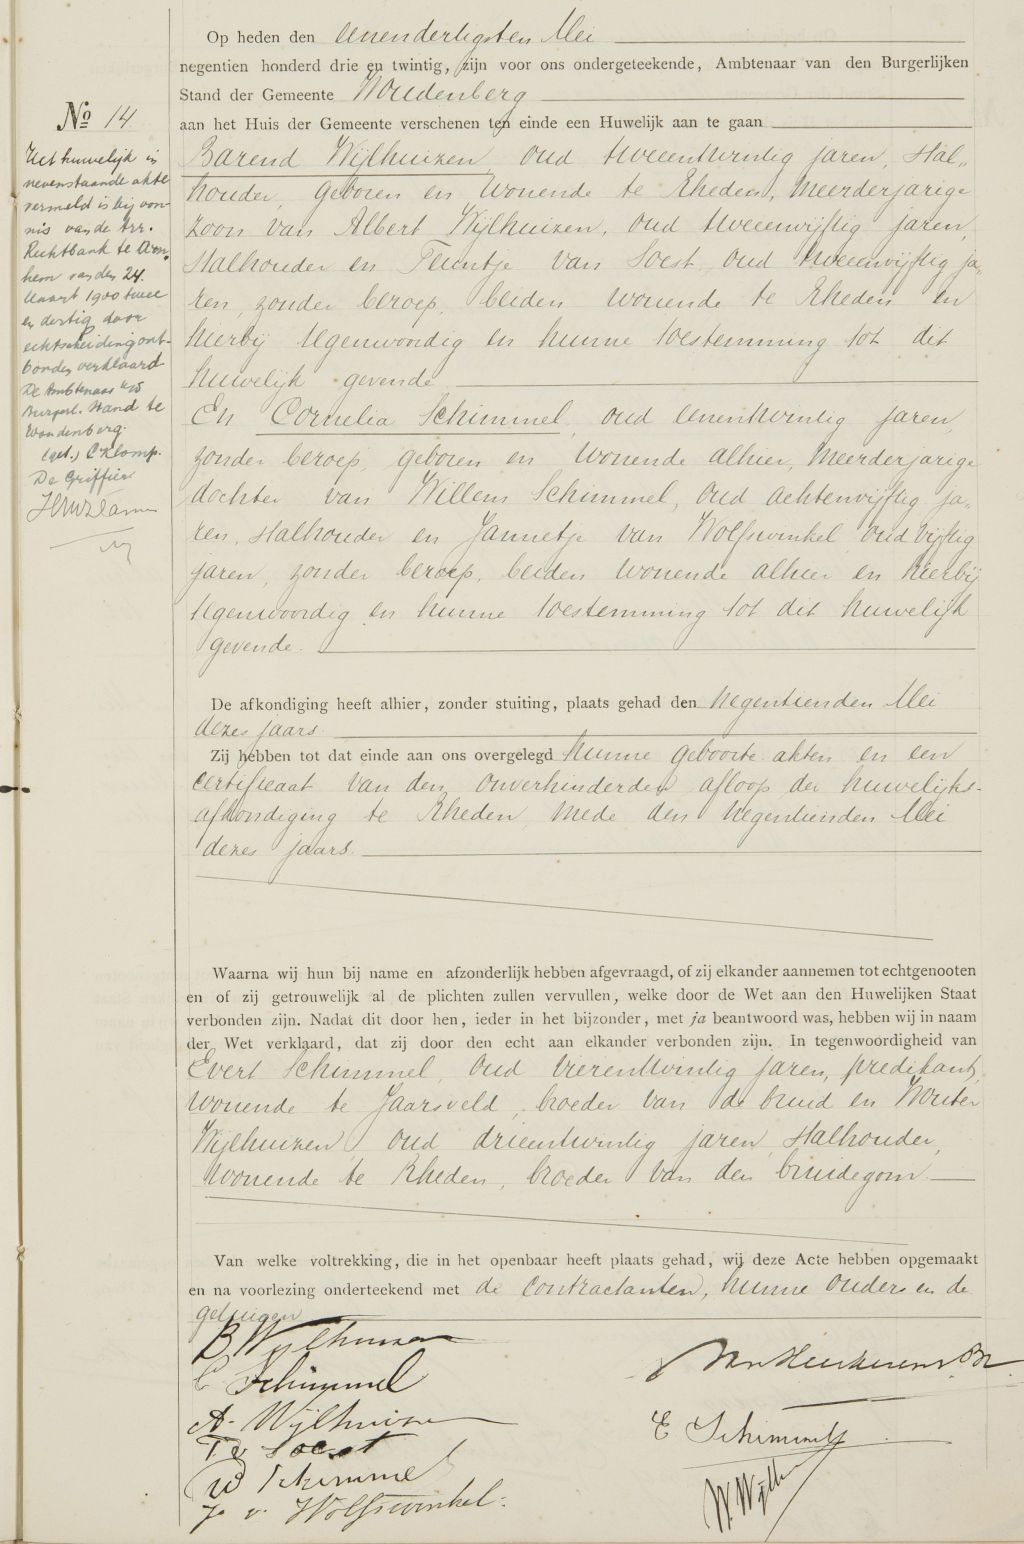 Op heden den eenendertigsten Mei
negentien honderd drie en twintig, zijn voor ons ondergeteekende, Ambtenaar van den Burgerlijken
Stand der Gemeente Woudenberg
aan het Huis der Gemeente verschenen ten einde een Huwelijk aan te gaan
Barend Wijlhuizen oud tweeentwintig jaren, Stal„
houder, geboren en wonende te Rheden, meerderjarige
zoon van Albert Wijlhuizen, oud tweeenvijftig jaren,
Stalhouder en Teuntje van Soest oud tweeenvijftig ja„
ren, zonder beroep, beiden wonende te Rheden en
hierbij tegenwoordig en hunne toestemming tot dit
huwelijk gevende
En Cornelia Schimmel, oud eenentwintig jaren,
zonder beroep, geboren en wonende alhier, meerderjarige
dochter van Willem Schimmel, oud achtenvijftig ja„
ren, Stalhouder en Jannetje van Wolfswinkel oud vijftig
jaren, zonder beroep, beiden wonende alhier en hierbij
tegenwoordig en hunne toestemming tot dit huwelijk
gevende.
No 14
Het huwelijk in
nevenstaande akte
vermeld is bij von-
nis van de Arr.
Rechtbank te Arn-
hem van den 24.
Maart 1900 twee
en dertig door
echtscheiding ont-
bonden verklaard
De Ambtenaar v/d
Burgerl. Stand te
Woudenberg.
(get.) C Klomp.
De Griffier
De afkondiging heeft alhier, zonder stuiting, plaats gehad den negentienden Mei
dezes jaars.
Zij hebben tot dat einde aan ons overgelegd hunne geboorte akten en een
certificaat van den onverhinderden afloop der huwelijks-
afkondiging te Rheden, mede den negentienden Mei
dezes jaars.
Waarna wij hun bij name en afzonderlijk hebben afgevraagd, of zij elkander aannemen tot echtgenooten
en of zij getrouwelijk al de plichten zullen vervullen, welke door de Wet aan den Huwelijken Staat
verbonden zijn. Nadat dit door hen, ieder in het bijzonder, met ja beantwoord was, hebben wij in naam
der Wet verklaard, dat zij door den echt aan elkander verbonden zijn. In tegenwoordigheid van
Evert Schimmel, oud vierentwintig jaren, predikant,
wonende te Jaarsveld, broeder van de bruid en Wouter
Wijlhuizen oud drieentwintig jaren, Stalhouder,
wonende te Rheden, broeder van den bruidegom
Van welke voltrekking, die in het openbaar heeft plaats gehad, wij deze Acte hebben opgemaakt
en na voorlezing onderteekend met de contractanten, hunne ouders en de
getuigen
B Wijlhuizen
C Schimmel
A. Wijlhuizen
T v Soest
W Schimmel
J v. Wolfswinkel.
E Schimmel
W. Wijlh